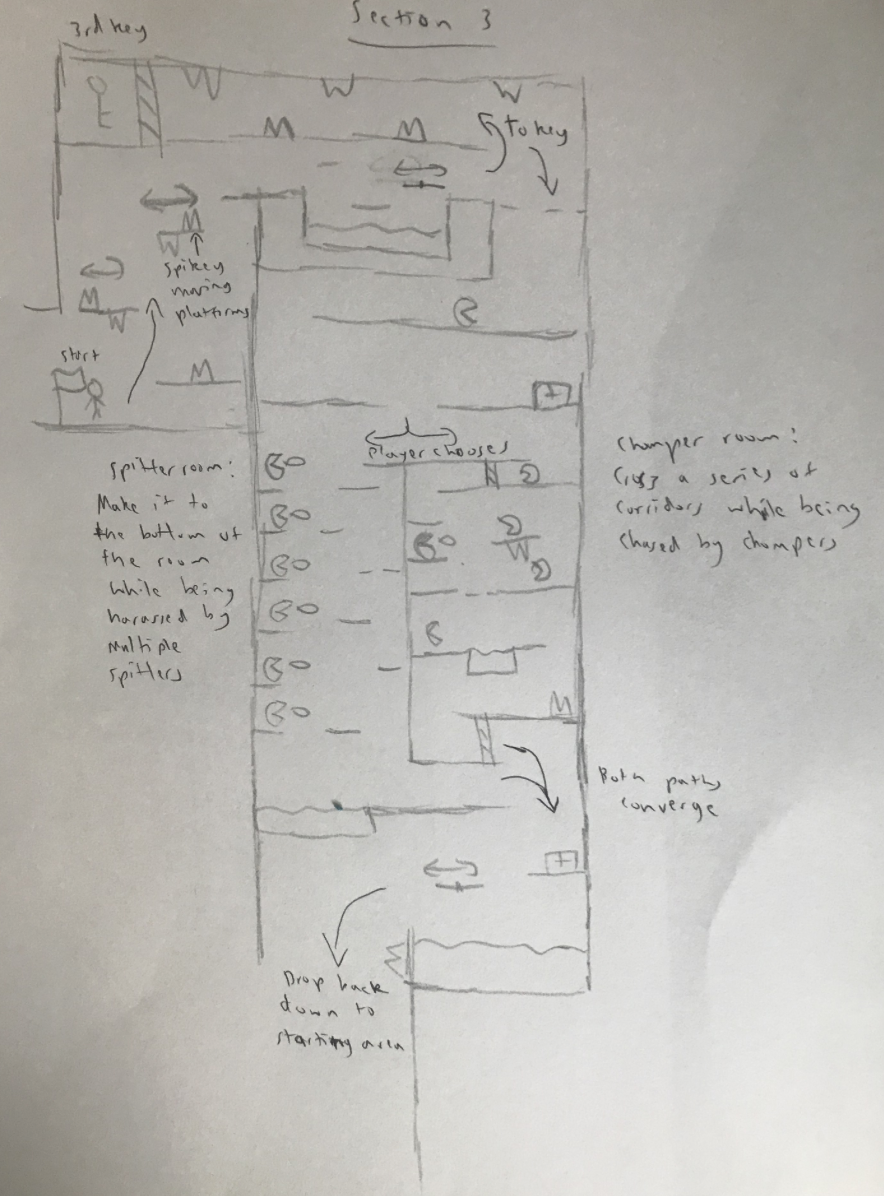 Section 3
3rd key
to key
spikey
moving
platforms
start
player chooses
spitter room:
Make it to
the bottom of
the room
while being
harassed by
multiple
spitters
Chomper room:
Cross a series of
corridors while being
chased by chompers
Both paths
converge
Drop back
down to
starting area